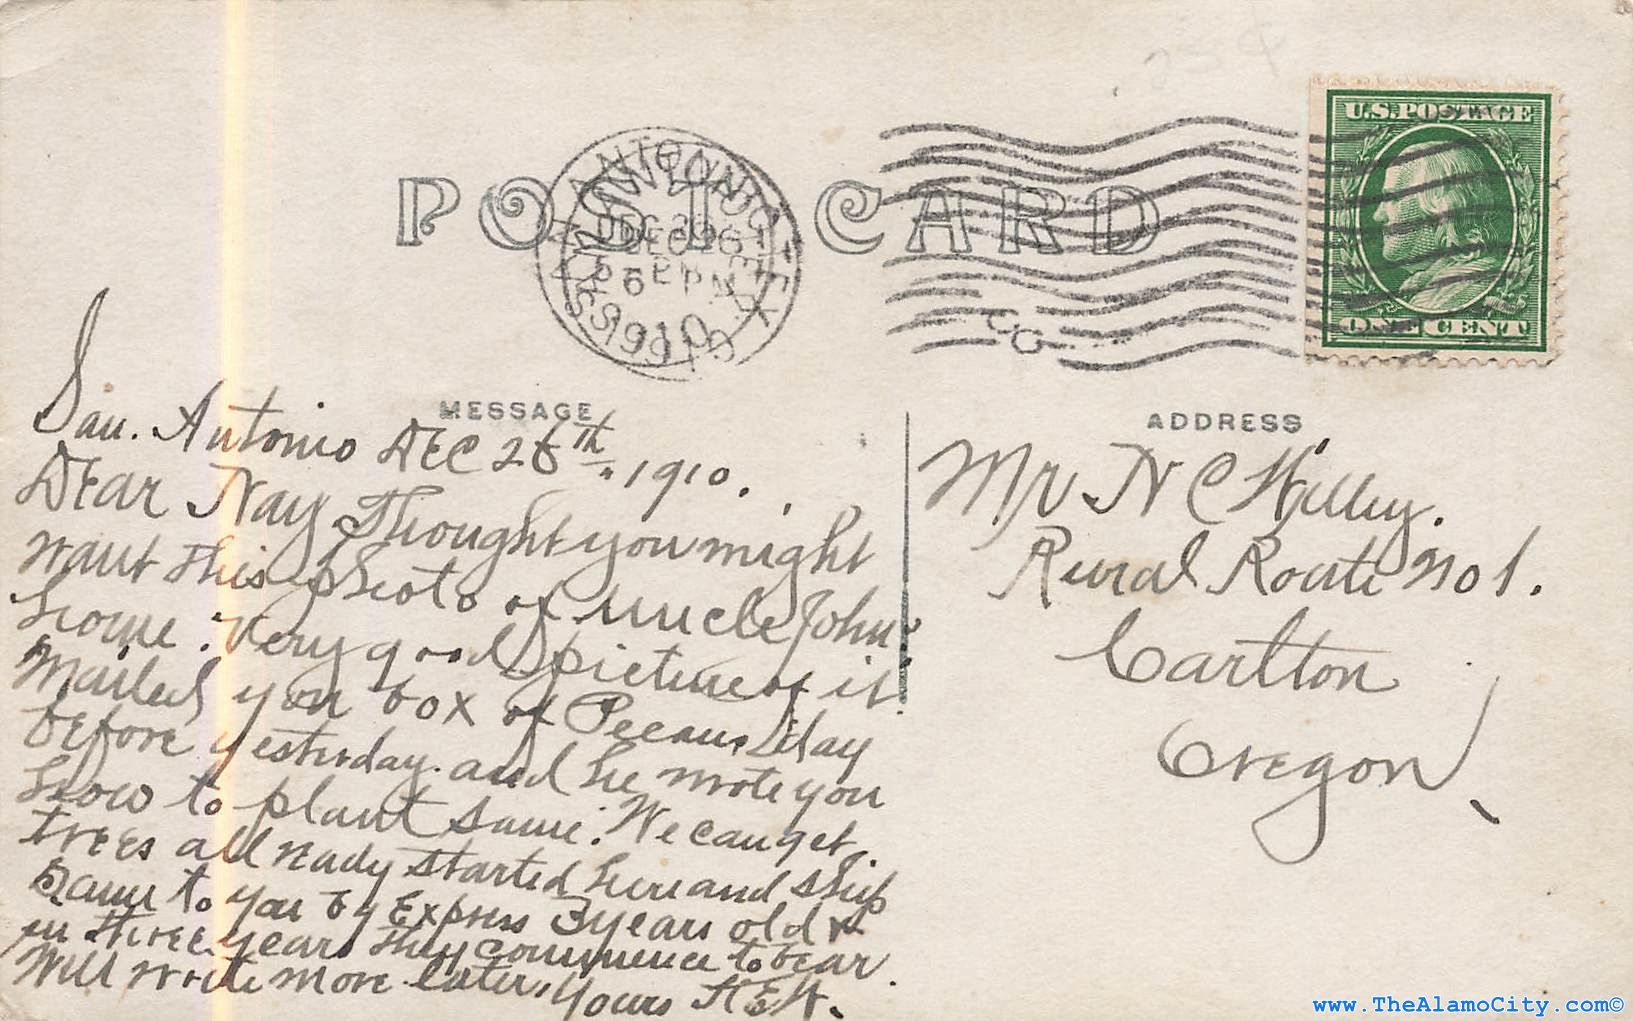 POST CARD
SAN ANTONIO
DEC 26
6 PM
1910
U.S. POSTAGE
ONE CENT
MESSAGE
San. Antonio DEC 26th 1910.
DEar Nay Thought you might
want this photo of Uncle John's
home. Very good picture of it
Mailed you box of Pecans day
before yesterday. and he wrote you
how to plant same. We can get
trees all ready started here and ship
Same to you by Express 3 years old &
in three years they commence to bear.
Will write more later, Yours
ADDRESS
Mr N C Willey.
Rural Route No 1.
Carlton
Oregon
www.TheAlamoCity.com©